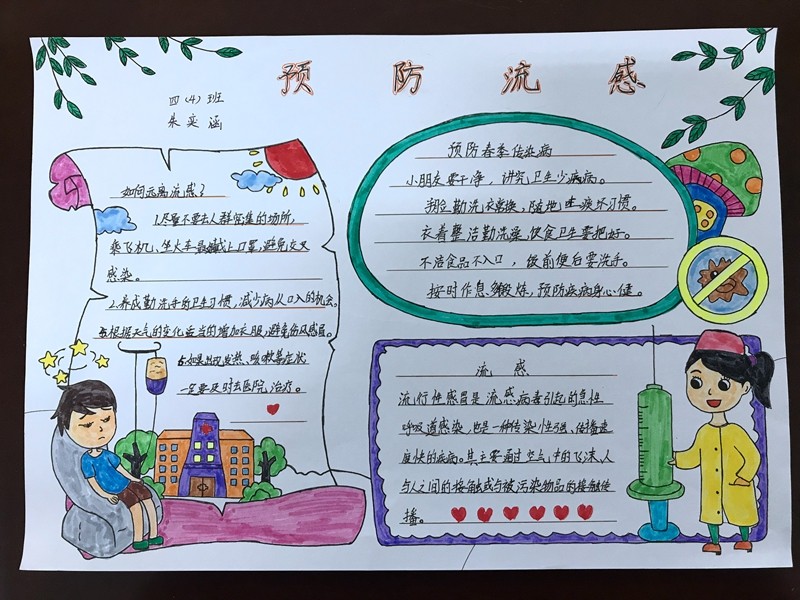 预防流感
四(4)班
朱奕涵
如何远离流感？
1.尽量不要去人群密集的场所，
乘飞机、坐火车最好戴上口罩，避免交叉
感染。
2.养成勤洗手的卫生习惯，减少病从口入的机会。
3.根据天气的变化适当的增加衣服，避免伤风感冒。
5.如果出现发热、咳嗽等症状
一定要及时去医院治疗。
预防春季传染病
小朋友要干净，讲究卫生少病病。
勤洗衣常换，随地吐痰坏习惯。
衣着整洁勤洗澡，饮食卫生要把好。
不洁食品不入口，饭前便后要洗手。
按时作息多锻炼，预防疾病身心健。
流感
流行性感冒是流感病毒引起的急性
呼吸道感染，也是一种传染性强、传播速
度快的疾病。其主要通过空气中的飞沫、人
与人之间的接触或与被污染物品的接触传
播。